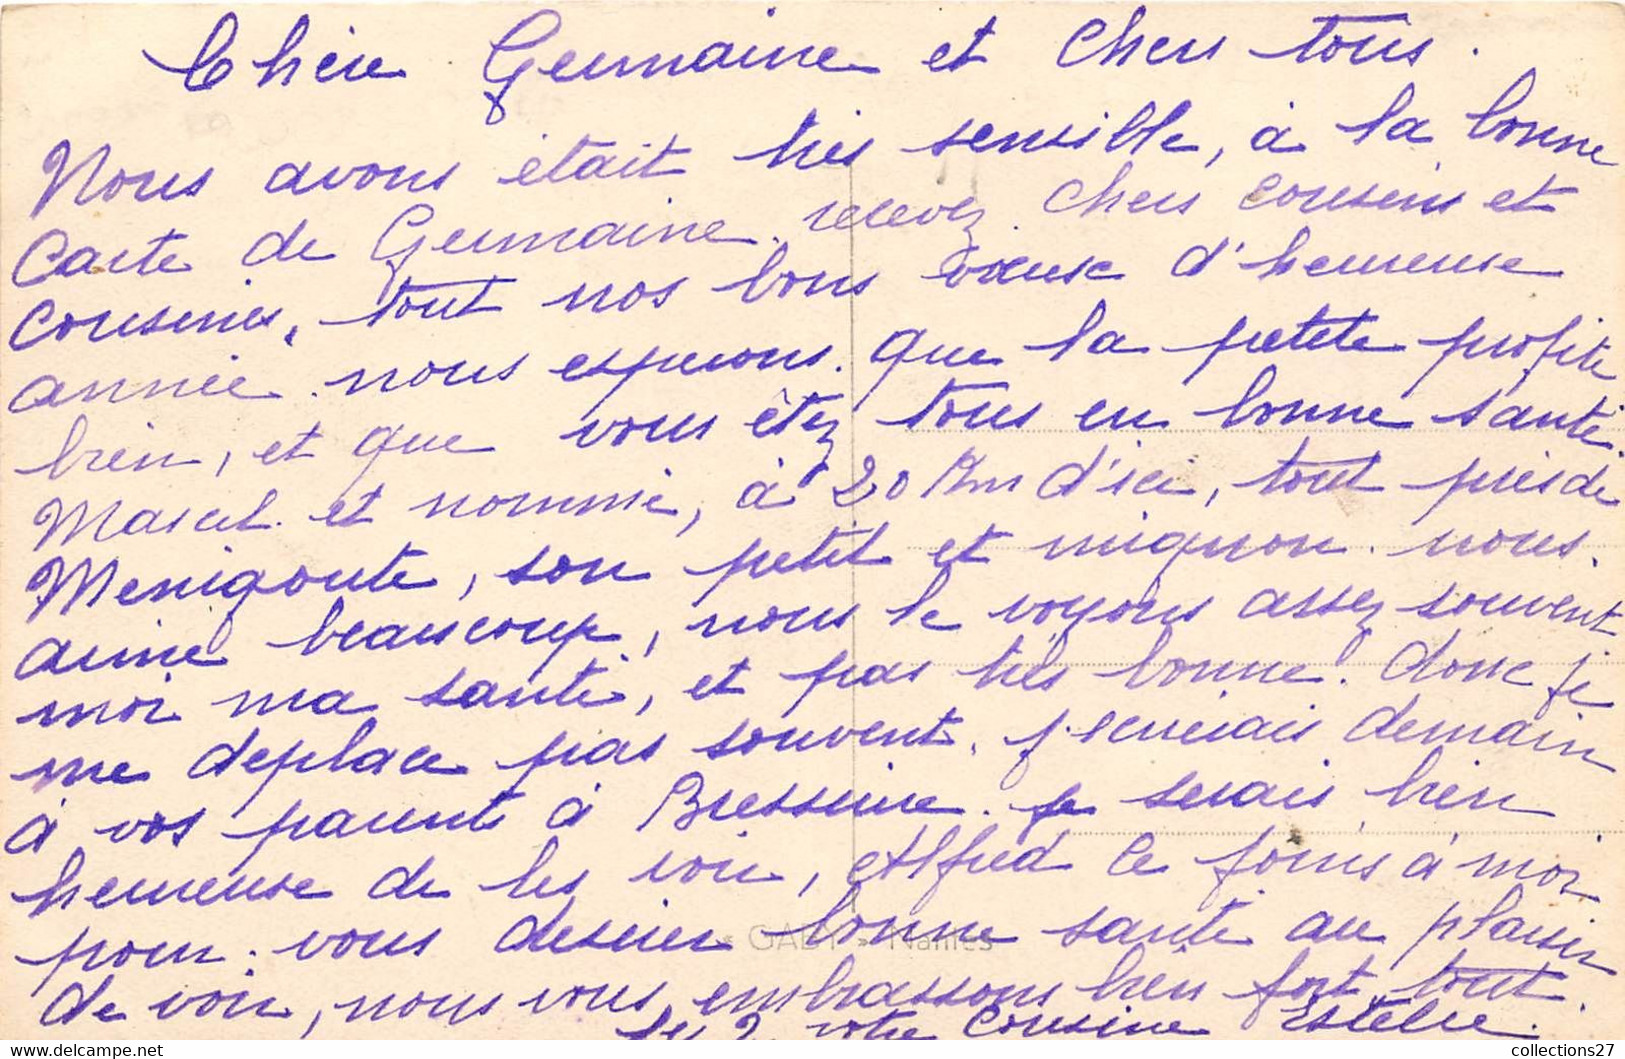 Chère Germaine et chers tous.
Nous avons était très sensible, à la bonne
Carte de Germaine. recevez. chers cousins et
cousines, tout nos bons vœuse d'heureuse
année. nous esperons. que la petete profite
bien, et que vous êtez tous en bonne santé.
Marcel. et nommé, à 20 Km d'ici, tout près de
Menigoute, son petit et mignon. nous.
aime beaucoup, nous le voyons assez souvent
moi ma santé, et pas très bonne. donc je
me deplace pas souvent. j'ecrierais demain
à vos parents à Bressuire. je serais bien
heureuse de les voir, Alfred ce joins à moi
pour. vous desirer bonne santé au plaisir
de voir, nous vous embrassons bien fort. tout.
les 2. votre Cousine Estelle.
GABY Nantes
collections27